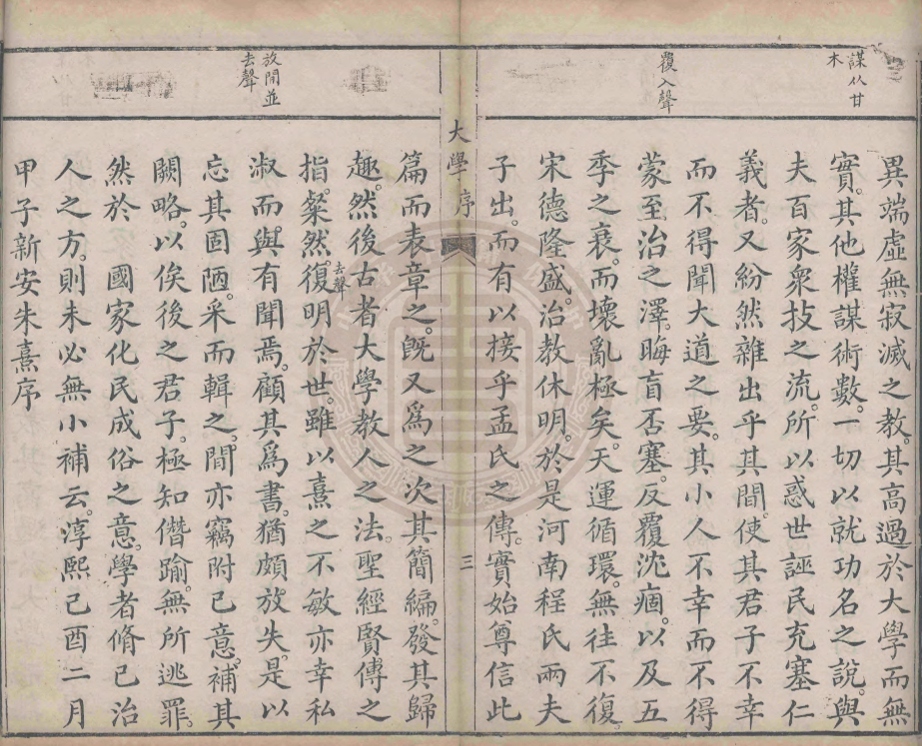 謀从甘
木
異端虛無寂滅之教。其高過於大學而無
實。其他權謀術數。一切以就功名之說。與
夫百家衆技之流。所以惑世誣民充塞仁
義者。又紛然雜出乎其閒。使其君子不幸
而不得聞大道之要。其小人不幸而不得
覆入聲
蒙至治之澤。晦盲否塞。反覆沈痼。以及五
季之衰。而壞亂極矣。天運循環。無往不復。
宋德隆盛。治教休明。於是河南程氏兩夫
子出。而有以接乎孟氏之傳。實始尊信此
大學序
三
篇而表章之。旣又爲之次其簡編。發其歸
趣。然後古者大學教人之法。聖經賢傳之
指。粲然復去聲明於世。雖以熹之不敏亦幸私
淑而與有聞焉。顧其爲書。猶頗放失。是以
放閒並
去聲
忘其固陋。采而輯之。閒亦竊附己意。補其
闕略。以俟後之君子。極知僭踰。無所逃罪。
然於 國家化民成俗之意。學者脩己治
人之方。則未必無小補云。淳熙己酉二月
甲子新安朱熹序